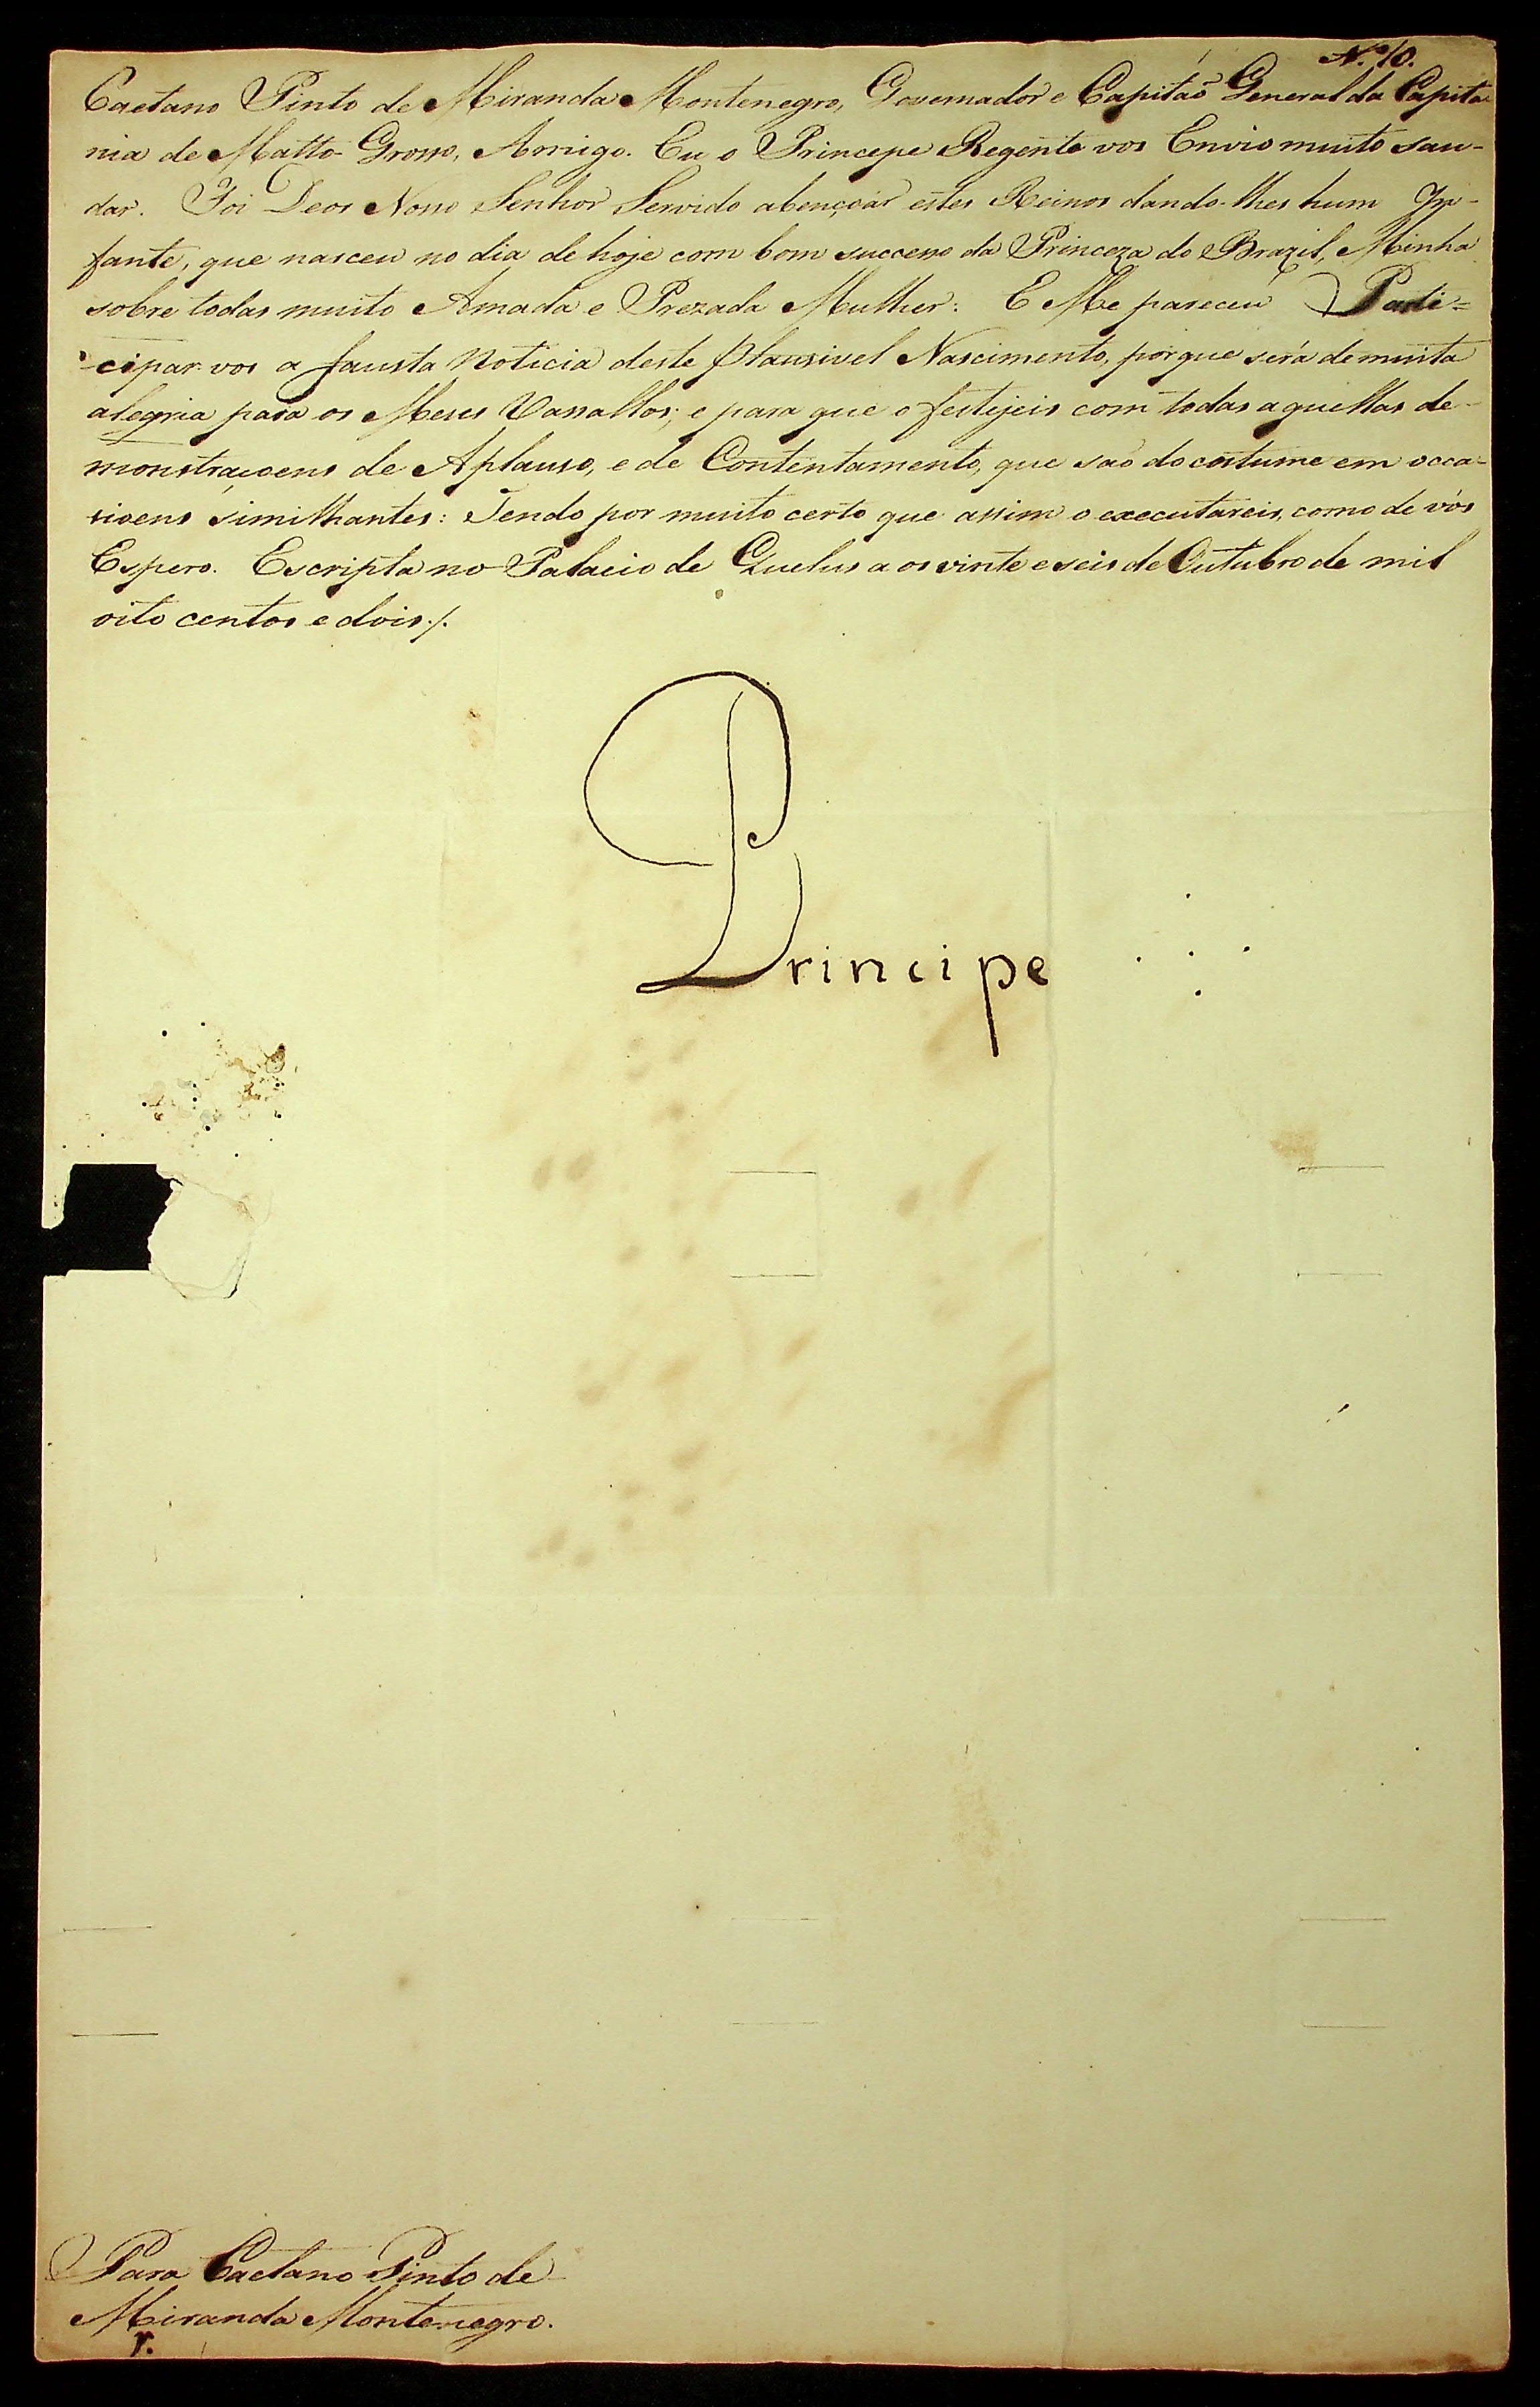 N.º 10.
Caetano Pinto de Miranda Montenegro, Governador e Capitaõ General da Capita-
nia de Matto Grosso, Amigo. Eu o Principe Regente vos Envio muito sau-
dar. Foi Deos Nosso Senhor Servido abençoar estes Reinos dando-lhes hum In-
fante, que nasceu no dia de hoje com bom successo da Princeza do Brazil, Minha
sobre todas muito Amada e Prezada Mulher: E Me pareceu Parti=
cipar vos a fausta Noticia deste plausivel Nascimento, porque será de muita
alegria para os Meus Vassallos; e para que o festijeis com todas aquellas de-
monstraçoens de Aplauso, e de Contentamento, que saõ do costume em occa-
sioens similhantes: Tendo por muito certo que assim o executareis, como de vós
Espero. Escripta no Palacio de Quelus aos vinte e seis de Outubro de mil
oito centos e dois./.
Principe
Para Caetano Pinto de
Miranda Montenegro.
r.